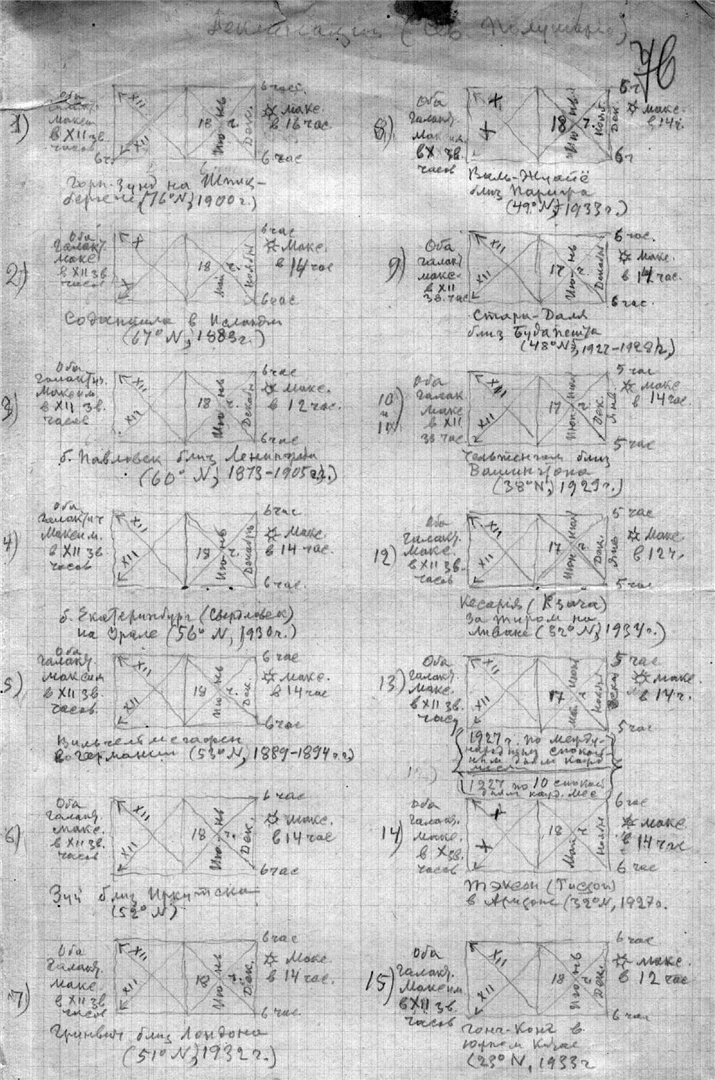 (Сев. Полушарие)
76
1)
Оба
галакт.
макс.
в XII зв.
часов
XII
XII
18 ч
Июнь
Дек.
6 час.
☼ макс.
в 16 час
6 час
6 ч
Горн-Зунд на Шпиц-
бергене (76° N, 1900 г.)
2)
Оба
галакт.
макс
в XII зв.
часов
X
X
18
Май
Ноябрь
6 час
☼ Макс.
в 14 час
6 час
Соданкюла в Исландии
(67° N, 1883 г.)
3)
Оба
галактич.
Максим.
в XII зв.
часов
XII
XII
18
Июнь
Декабрь
6 час
☼ Макс.
в 12 час.
6 час
б. Павловск близ Ленинграда
(60° N, 1873-1905 г.г.)
4)
Оба
галактич
Максим.
в XII зв
часов
XII
XII
18
Июнь
Декабрь
6 час
☼ Макс.
в 14 час.
6 час.
б. Екатеринбург (Свердловск)
на Урале (56° N, 1930 г.)
5)
Оба
галакт.
максим
в XII зв.
часов
XII
XII
18
Июнь
Дек.
6 час
☼ макс.
в 14 час
6 час
Вильгельмсгафен
в Германии (53° N, 1889-1894 г.г.)
6)
Оба
галакт.
макс.
в XII зв
часов
XII
XII
18 ч.
Июнь
Дек.
6 час
☼ макс.
в 14 час
6 час
Зуй близ Иркутска
(52° N)
7)
Оба
галакт.
макс.
в XII зв
часов
XII
XII
18
Июнь
Дек.
6 час
☼ Макс.
в 14 час.
6 час.
Гринвич близ Лондона
(51° N, 1932 г.)
8)
Оба
галакт.
в X зв.
часов
X
X
18 ч.
Июнь
Дек.
6 ч
☼ макс.
в 14 ч.
6 ч
Виль-Жуайё
близ Парижа
(49° N, 1933 г.)
9)
Оба
галакт
макс.
в XII
зв. час
XII
XII
17
Июнь
Декабрь
6 час.
☼ Макс.
в 14 час.
6 час.
Стара-Даля
близ Будапешта
(48° N, 1927-1928 г.)
10)
и
11)
Оба
галак.
Макс
в XII
зв час
XII
XII
17
Июн - Июл
Дек.
Янв.
5 час
☼ макс
в 14 час
5 час
Чельтенгам близ
Вашингтона
(38° N, 1929 г.)
12)
Оба
галакт.
Макс.
в XII зв.
часов
XII
XII
17
Июн - Июл
Дек.
Янв
5 час
☼ Макс.
в 12 ч.
5 час
Кесария
(32° N, 1934 г.)
13)
Оба
галакт.
Макс.
в XII зв.
часов
XII
XII
17
Ноябрь
5 час
☼ макс.
в 14 ч.
5 час
1927 г. по между-
народным спокой-
ным дням кажд.
месяца
1927 по 10 спокой
дням кажд. мес
14)
Оба
галакт.
Макс.
в X зв.
часов
X
X
18
Май
Ноябрь
6 час
☼ Макс
в 14 час
6 час
Тэксон (Тюсон)
в Аризоне (32° N, 1927 г.
15)
Оба
галакт.
Максим
в XII зв.
часов
XII
XII
18
Июнь
Дек.
6 час
☼ Макс.
в 12 час
6 час
Гонг-Конг в
Южном Китае
(23° N, 1933 г